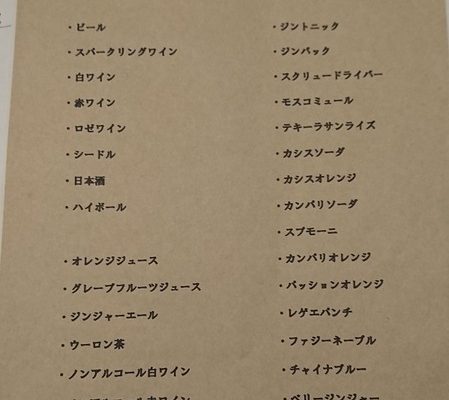 ・ビール
・スパークリングワイン
・白ワイン
・赤ワイン
・ロゼワイン
・シードル
・日本酒
・ハイボール
・オレンジジュース
・グレープフルーツジュース
・ジンジャーエール
・ウーロン茶
・ノンアルコール白ワイン
・ジントニック
・ジンバック
・スクリュードライバー
・モスコミュール
・テキーラサンライズ
・カシスソーダ
・カシスオレンジ
・カンパリソーダ
・スプモーニ
・カンパリオレンジ
・パッションオレンジ
・レゲエパンチ
・ファジーネーブル
・チャイナブルー
・ベリージンジャー